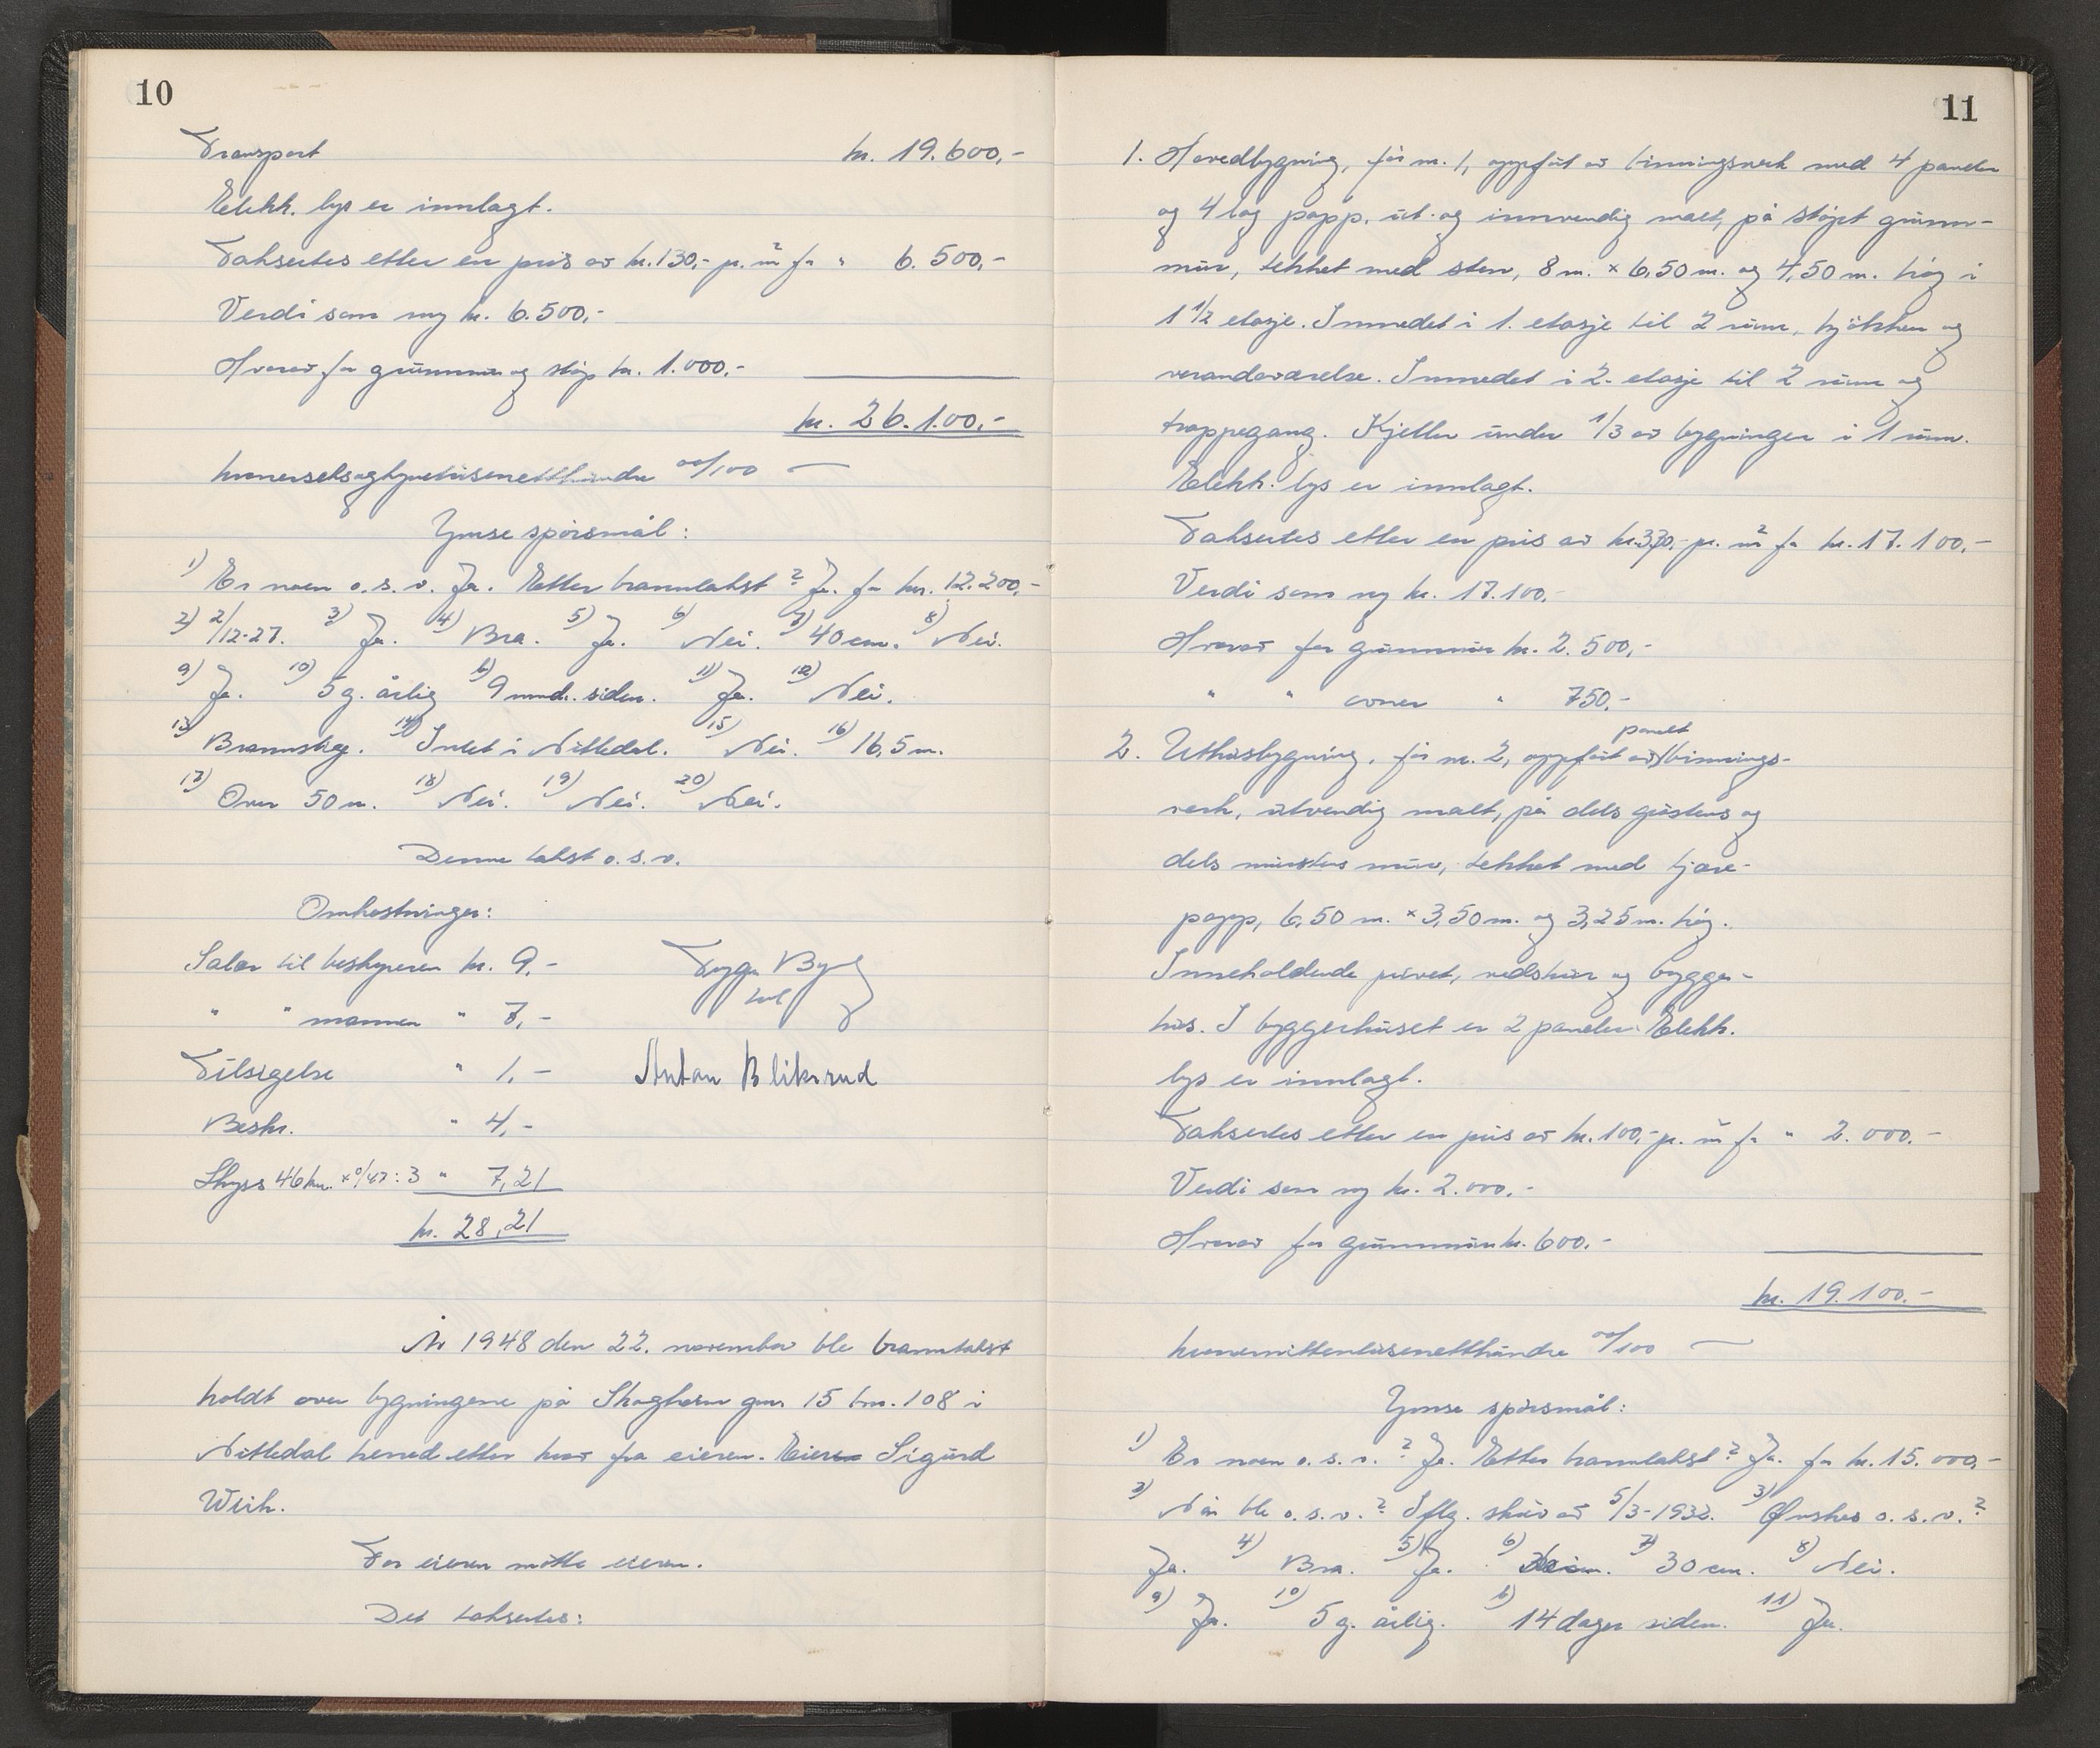 10
Transport kr. 19.600,-
Elekk. lys er innlagt.
Taksertes etter en pris av kr. 130,- pr. m² for " 6.500,-
Verdi som ny kr. 6.500,-
Hvorav for grunnmur og støp kr. 1.000,-
kr. 26.100,-
kronerseksogtyvetusenetthundre 00/100
Ymse spørsmål:
1) Er noen o.s.v. Ja. Etter branntakst? Ja. for kr. 12.200,-
2) 2/12-27. 3) Ja. 4) Bra. 5) Ja. 6) Nei. 7) 40 cm. 8) Nei.
9) Ja. 10) 5 g. årlig b) 9 mndr. siden. 11) Ja. 12) Nei.
13) Brannstige. 14) Intet i Nittedal. 15) Nei. 16) 16,5 m.
17) Over 50 m. 18) Nei. 19) Nei. 20) Nei.
Denne takst o.s.v.
Omkostninger:
Salær til bestyreren kr. 9,-
" " mannen " 7,-
Tilsigelse " 1,- Anton Bliksrud
Beskr. " 4,-
Skyss 46 km. : 3 " 7,21
kr. 28,21
År 1948 den 22. november ble branntakst
holdt over bygningene på Skogheim gnr. 15 bnr. 108 i
Nittedal herred etter krav fra eieren. Eier Sigurd
For eieren møtte eieren.
Det taksertes:
11
1. Hovedbygning, før nr. 1, oppført av binningsverk med 4 paneler
og 4 lag papp, ut- og innvendig malt, på støpt grunn-
mur, tekket med sten, 8 m. × 6,50 m. og 4,50 m. høg i
1 1/2 etasje. Innredet i 1. etasje til 2 rum, kjøkken og
verandaværelse. Innredet i 2. etasje til 2 rum og
trappegang. Kjeller under 1/3 av bygningen i 1 rum.
Elekk. lys er innlagt.
Taksertes etter en pris av kr. 330,- pr. m² for kr. 17.100,-
Verdi som ny kr. 17.100,-
Hvorav for grunnmur kr. 2.500,-
" " ovner " 750,-
panelt
2. Uthusbygning, før nr. 2, oppført av binnings-
verk, utvendig malt, på dels gråstens og
dels murstens mur, tekket med tjære-
papp, 6,50 m. × 3,50 m. og 3,25 m. høg.
Inneholdende privet, vedskur og brygger-
hus. I bryggerhuset er 2 paneler. Elekk.
lys er innlagt.
Taksertes etter en pris av kr. 100,- pr. m² for " 2.000,-
Verdi som ny kr. 2.000,-
Hvorav for grunnmur kr. 600,-
kr. 19.100,-
kronernittentusenetthundre 00/100
Ymse spørsmål:
1) Er noen o.s.v.? Ja. Etter branntakst? Ja. for kr. 15.000,-
2) Når ble o.s.v.? Iflg. skriv av 5/3-1932. 3) Ønskes o.s.v.?
Ja. 4) Bra. 5) Ja. 6) 7) 30 cm. 8) Nei.
9) Ja. 10) 5 g. årlig. b) 14 dager siden. 11) Ja.